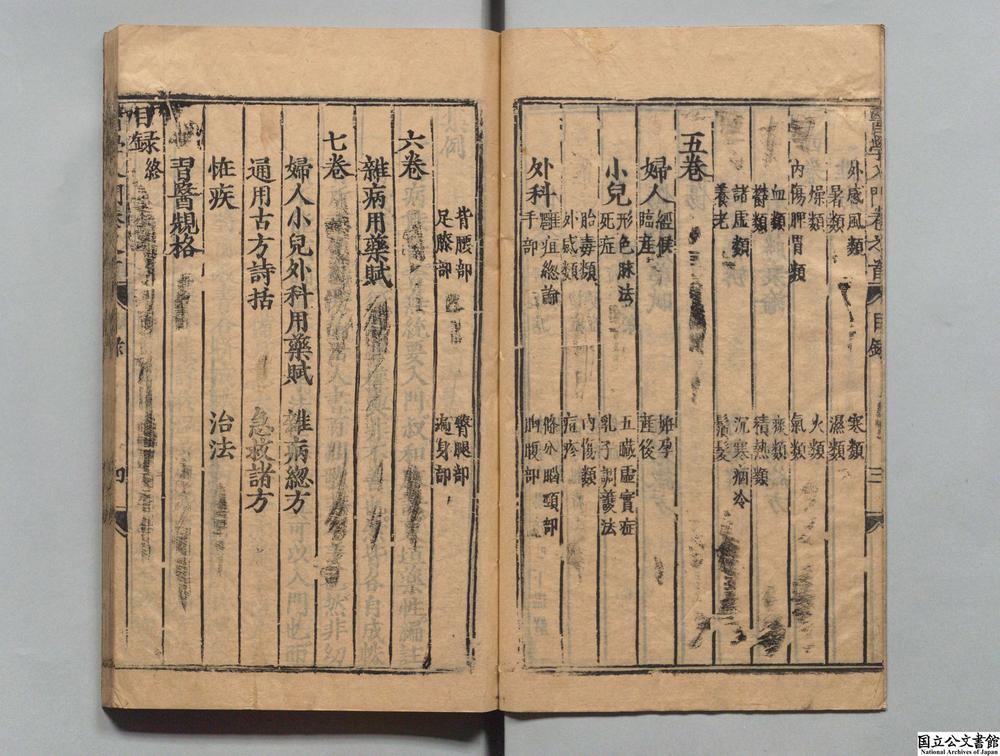 醫學入門卷之首 目録 三
外感風類 寒類
暑類 濕類
燥類 火類
內傷脾胃類 氣類
血類 痰類
鬱類 積熱類
諸虛類 沉寒痼冷
養老 鬚髮
五卷
婦人 經候 姙孕
臨產 產後
小兒 形色脉法 五臟虛實症
死症 乳子調護法
胎毒類 內傷類
外感類 痘疹
外科 癰疽總論 腦頸部
手部 胸腹部
背腰部 臀腿部
足膝部 遍身部
六卷
雜病用藥賦
七卷
婦人小兒外科用藥賦 雜病總方
通用古方詩括 急救諸方
恠疾 治法
習醫規格
目録終
四
国立公文書館
National Archives of Japan